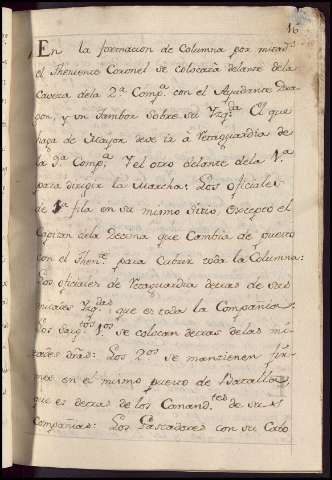 16
En la formacion de Columna por mitad.s
el Theniente Coronel se colocará delante dela
Cavera dela 2.ª Comp.ª con el Ayudante
y un Tambor sobre su Yzq.da El que
haga de Mayor deve ir à Retaguardia de
la 9.ª Comp.ª Y el otro delante dela 1.ª
para dirigir la Marcha: Los oficiales
de 1.ª fila en su mismo sitio, excepto el
Capitan dela Decima que Cambia de puesto
con el Then.te para Cubrir toda la Columna:
Los oficiales de Retaguardia detras de sus
mitades Yzq.das que es toda la Compania.
Los Sarg.tos 1.os se colocan detras de las mi
tades dras: Los 2.os se mantienen fir
mes en el mismo puesto de Batalla,
que es detras de los Comand.tes de sus
Companias: Los Gastadores con su Cabo